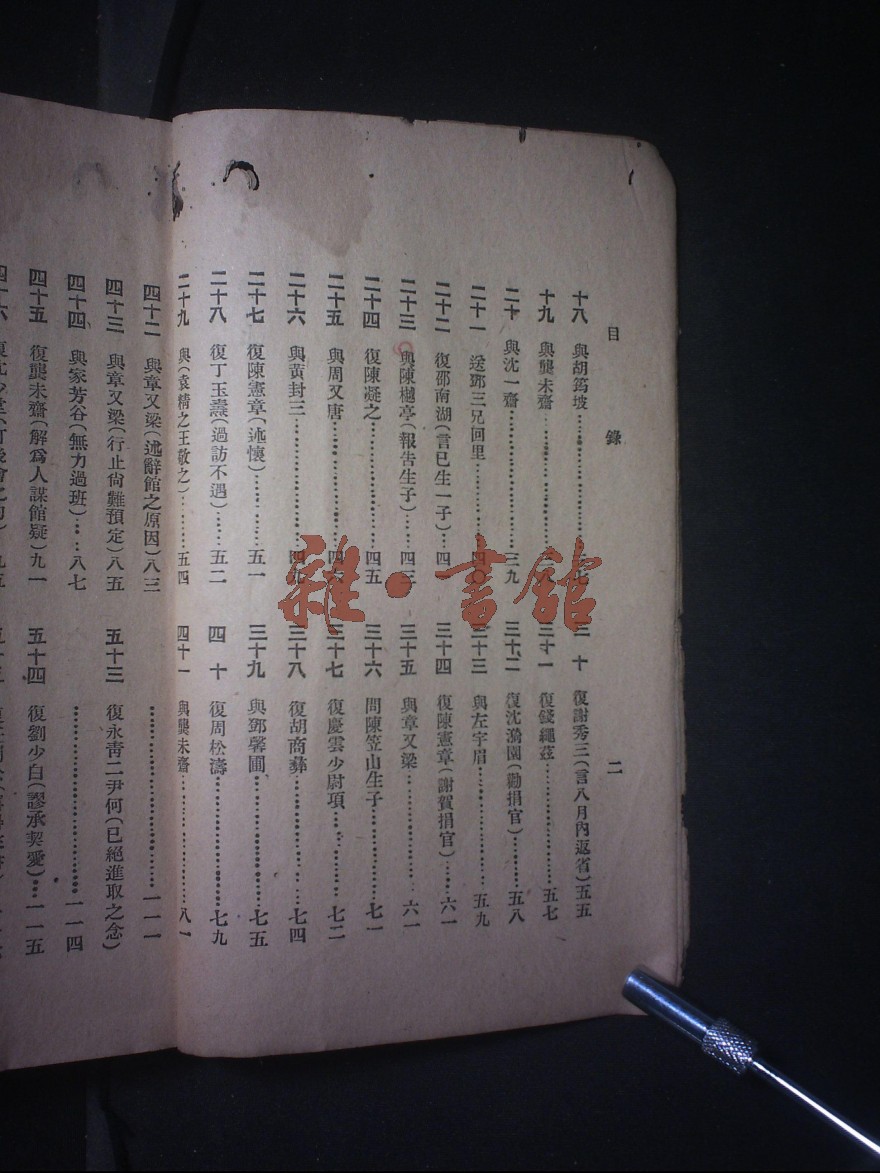 目錄 二
十八 與胡筠坡……七
十九 與龔未齋……
二十 與沈一齋……三九
二十一 送鄧三兄回里……四〇
二十二 復邵南湖(言已生一子)…四
二十三 與陳樾亭(報告生子)……四三
二十四 復陳凝之……四五
二十五 與周又唐……四六
二十六 與黃封三……四九
二十七 復陳憲章(述懷)……五一
二十八 復丁玉壽(過訪不遇)……五二
二十九 與(袁精之王敬之)……五四
三十 復謝秀三(言八月內返省)五五
三十一 復錢繩茲……五七
三十二 復沈漪園(勸捐官)……五八
三十三 與左宇眉……五九
三十四 復陳憲章(謝賀捐官)……六一
三十五 與章又梁……六一
三十六 問陳笠山生子……七一
三十七 復慶雲少尉項……七二
三十八 復胡商彝……七四
三十九 與鄧馨圃……七五
四十 復周松濤……七九
四十一 與龔未齋……八一
四十二 與章又梁(述辭館之原因)八三
四十三 與章又梁(行止尙難預定)八五
四十四 與家芳谷(無力過班)……八七
四十五 復龔未齋(解爲人謀館疑)九一
四十六
……一一一
五十三 復永靑二尹何(已絕進取之念)
……一一四
五十四 復劉少白(謬承契愛)…一一五
雜·書館